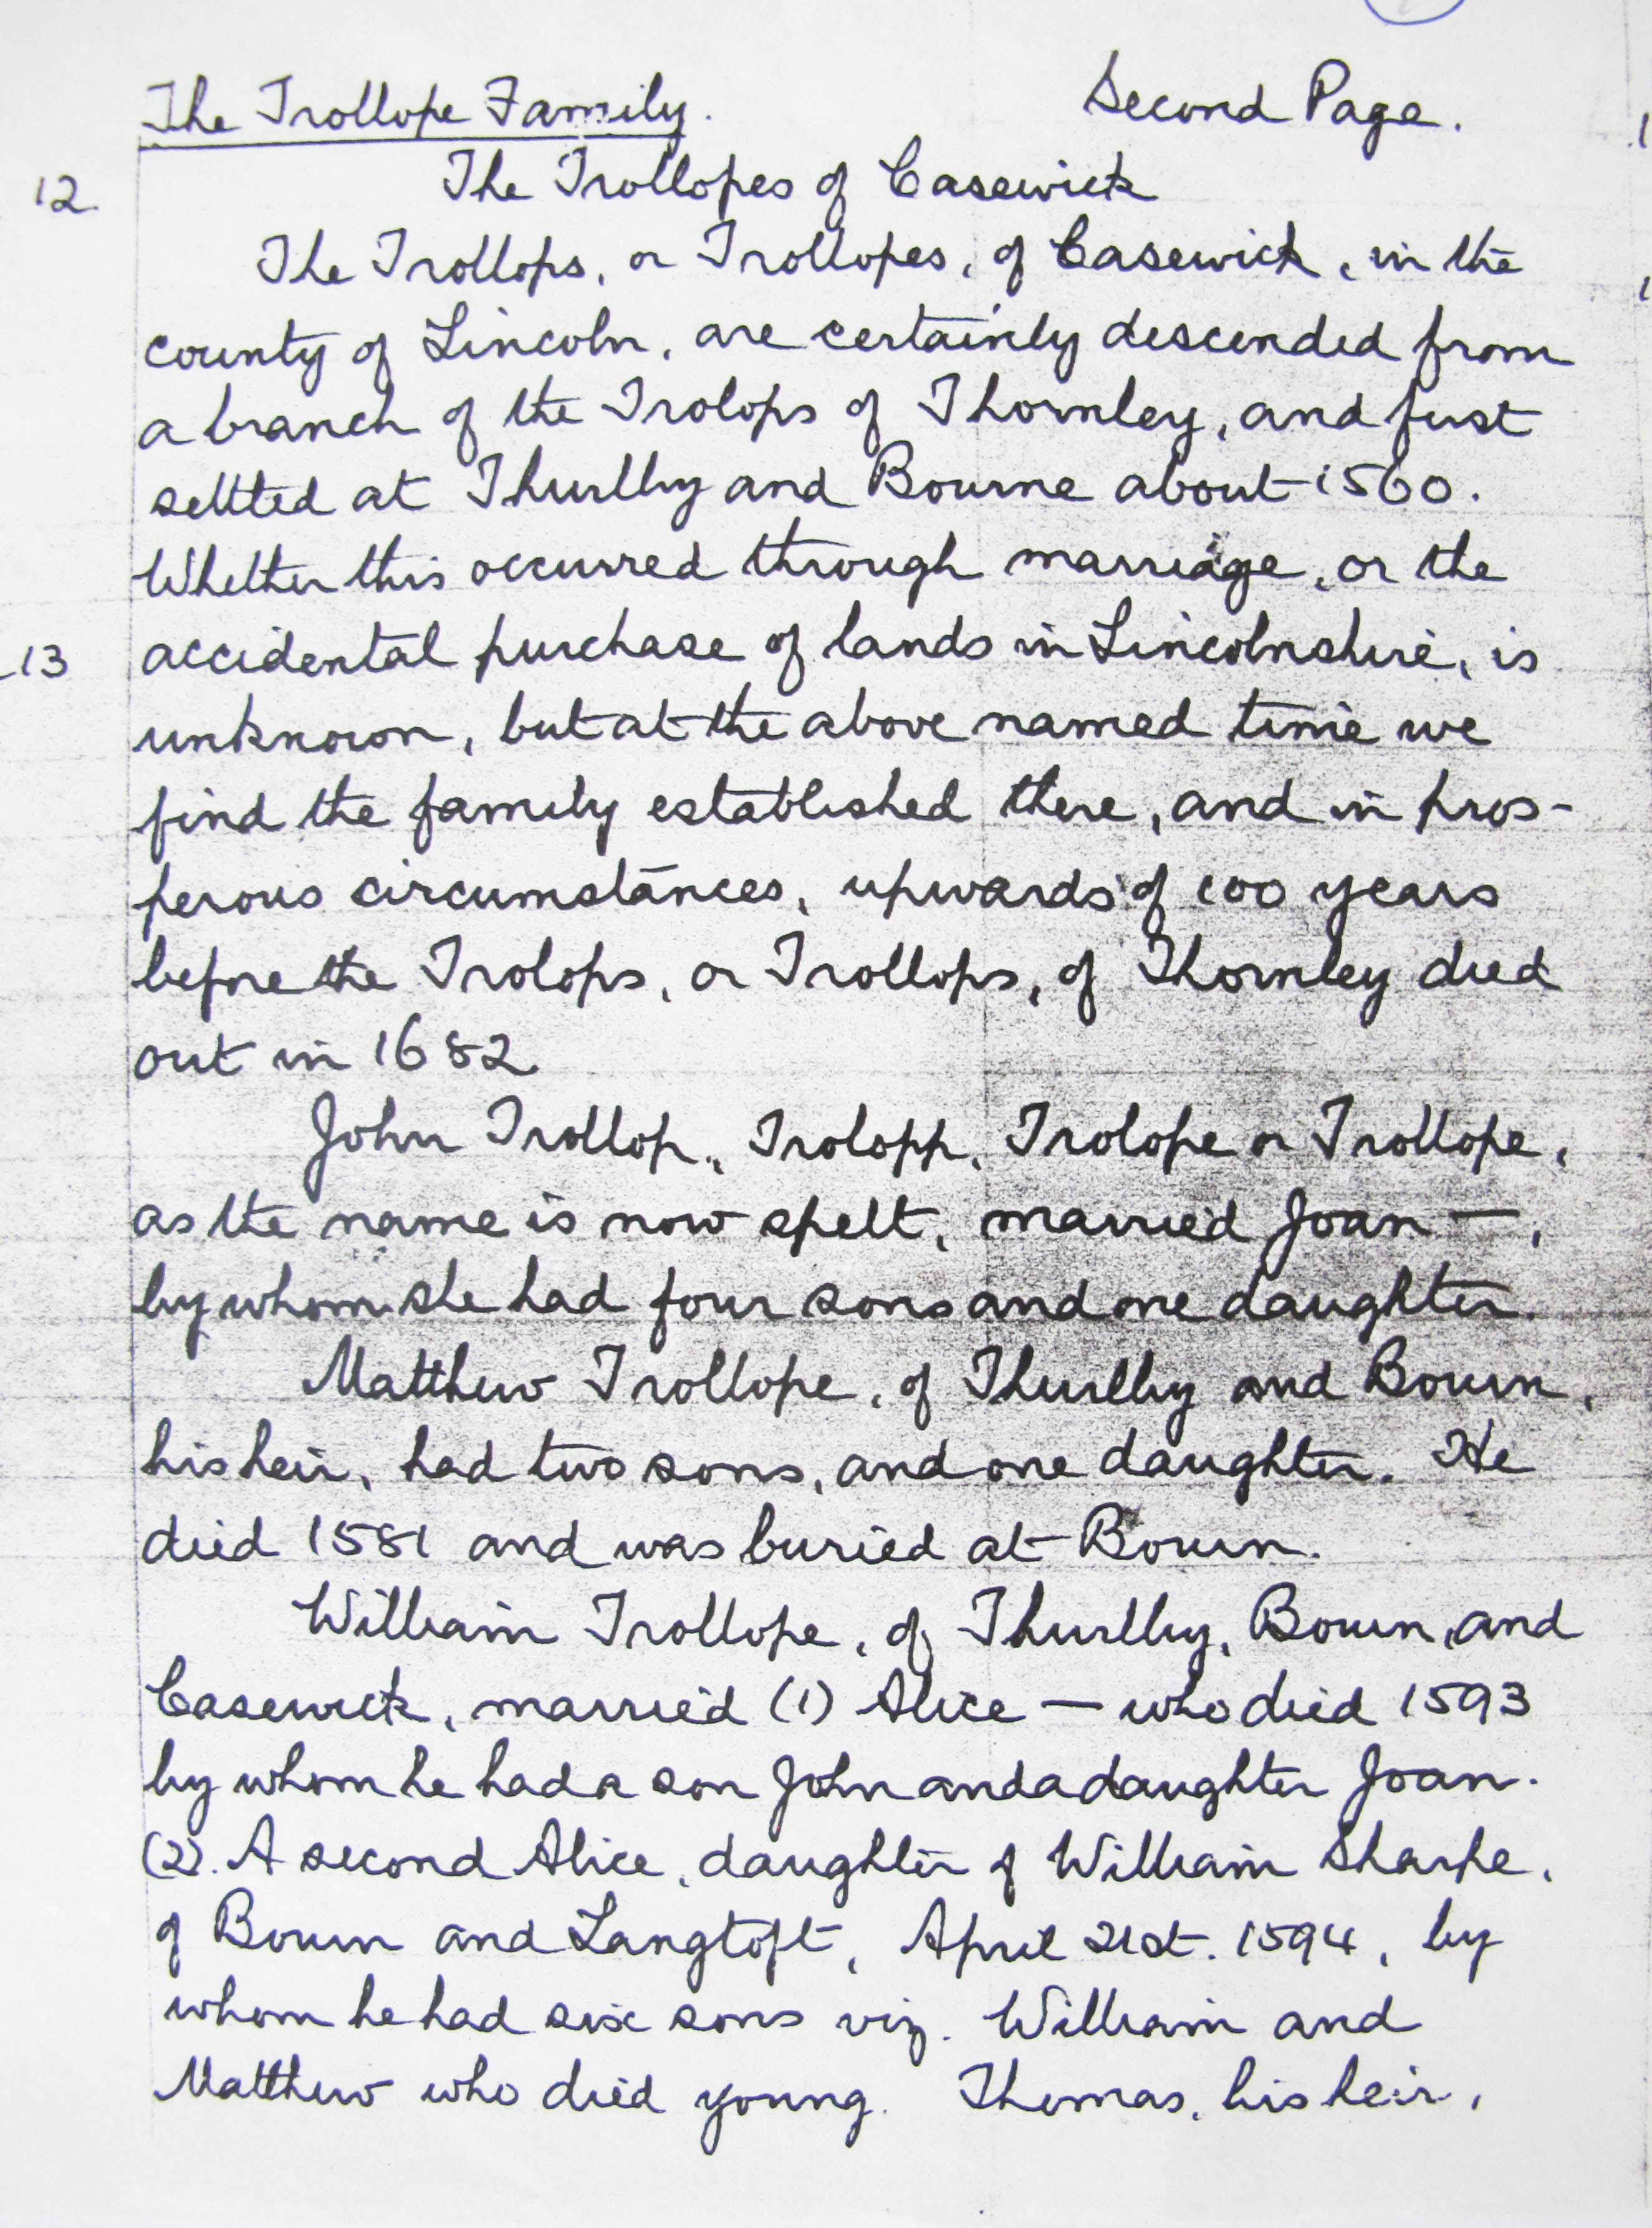 The Trollope Family. Second Page.
12. The Trollopes of Casewick
The Trollops, or Trollopes, of Casewick, in the
county of Lincoln, are certainly descended from
a branch of the Trolops of Thornley, and first
settled at Thurlby and Bourne about 1560.
Whether this occurred through marriage, or the
13 accidental purchase of lands in Lincolnshire, is
unknown, but at the above named time we
find the family established there, and in pros-
perous circumstances, upwards of 100 years
before the Trolops, or Trollops, of Thornley died
out in 1682
John Trollop, Trolopp, Trolope or Trollope,
as the name is now spelt, married Joan —,
by whom she had four sons and one daughter.
Matthew Trollope, of Thurlby and Bourn,
his heir, had two sons, and one daughter. He
died 1581 and was buried at Bourn.
William Trollope, of Thurlby, Bourn, and
Casewick, married (1) Alice — who died 1593
by whom he had a son John and a daughter Joan.
(2). A second Alice, daughter of William Sharpe,
of Bourn and Langtoft, April 21st. 1594, by
whom he had six sons viz. William and
Matthew who died young. Thomas, his heir,